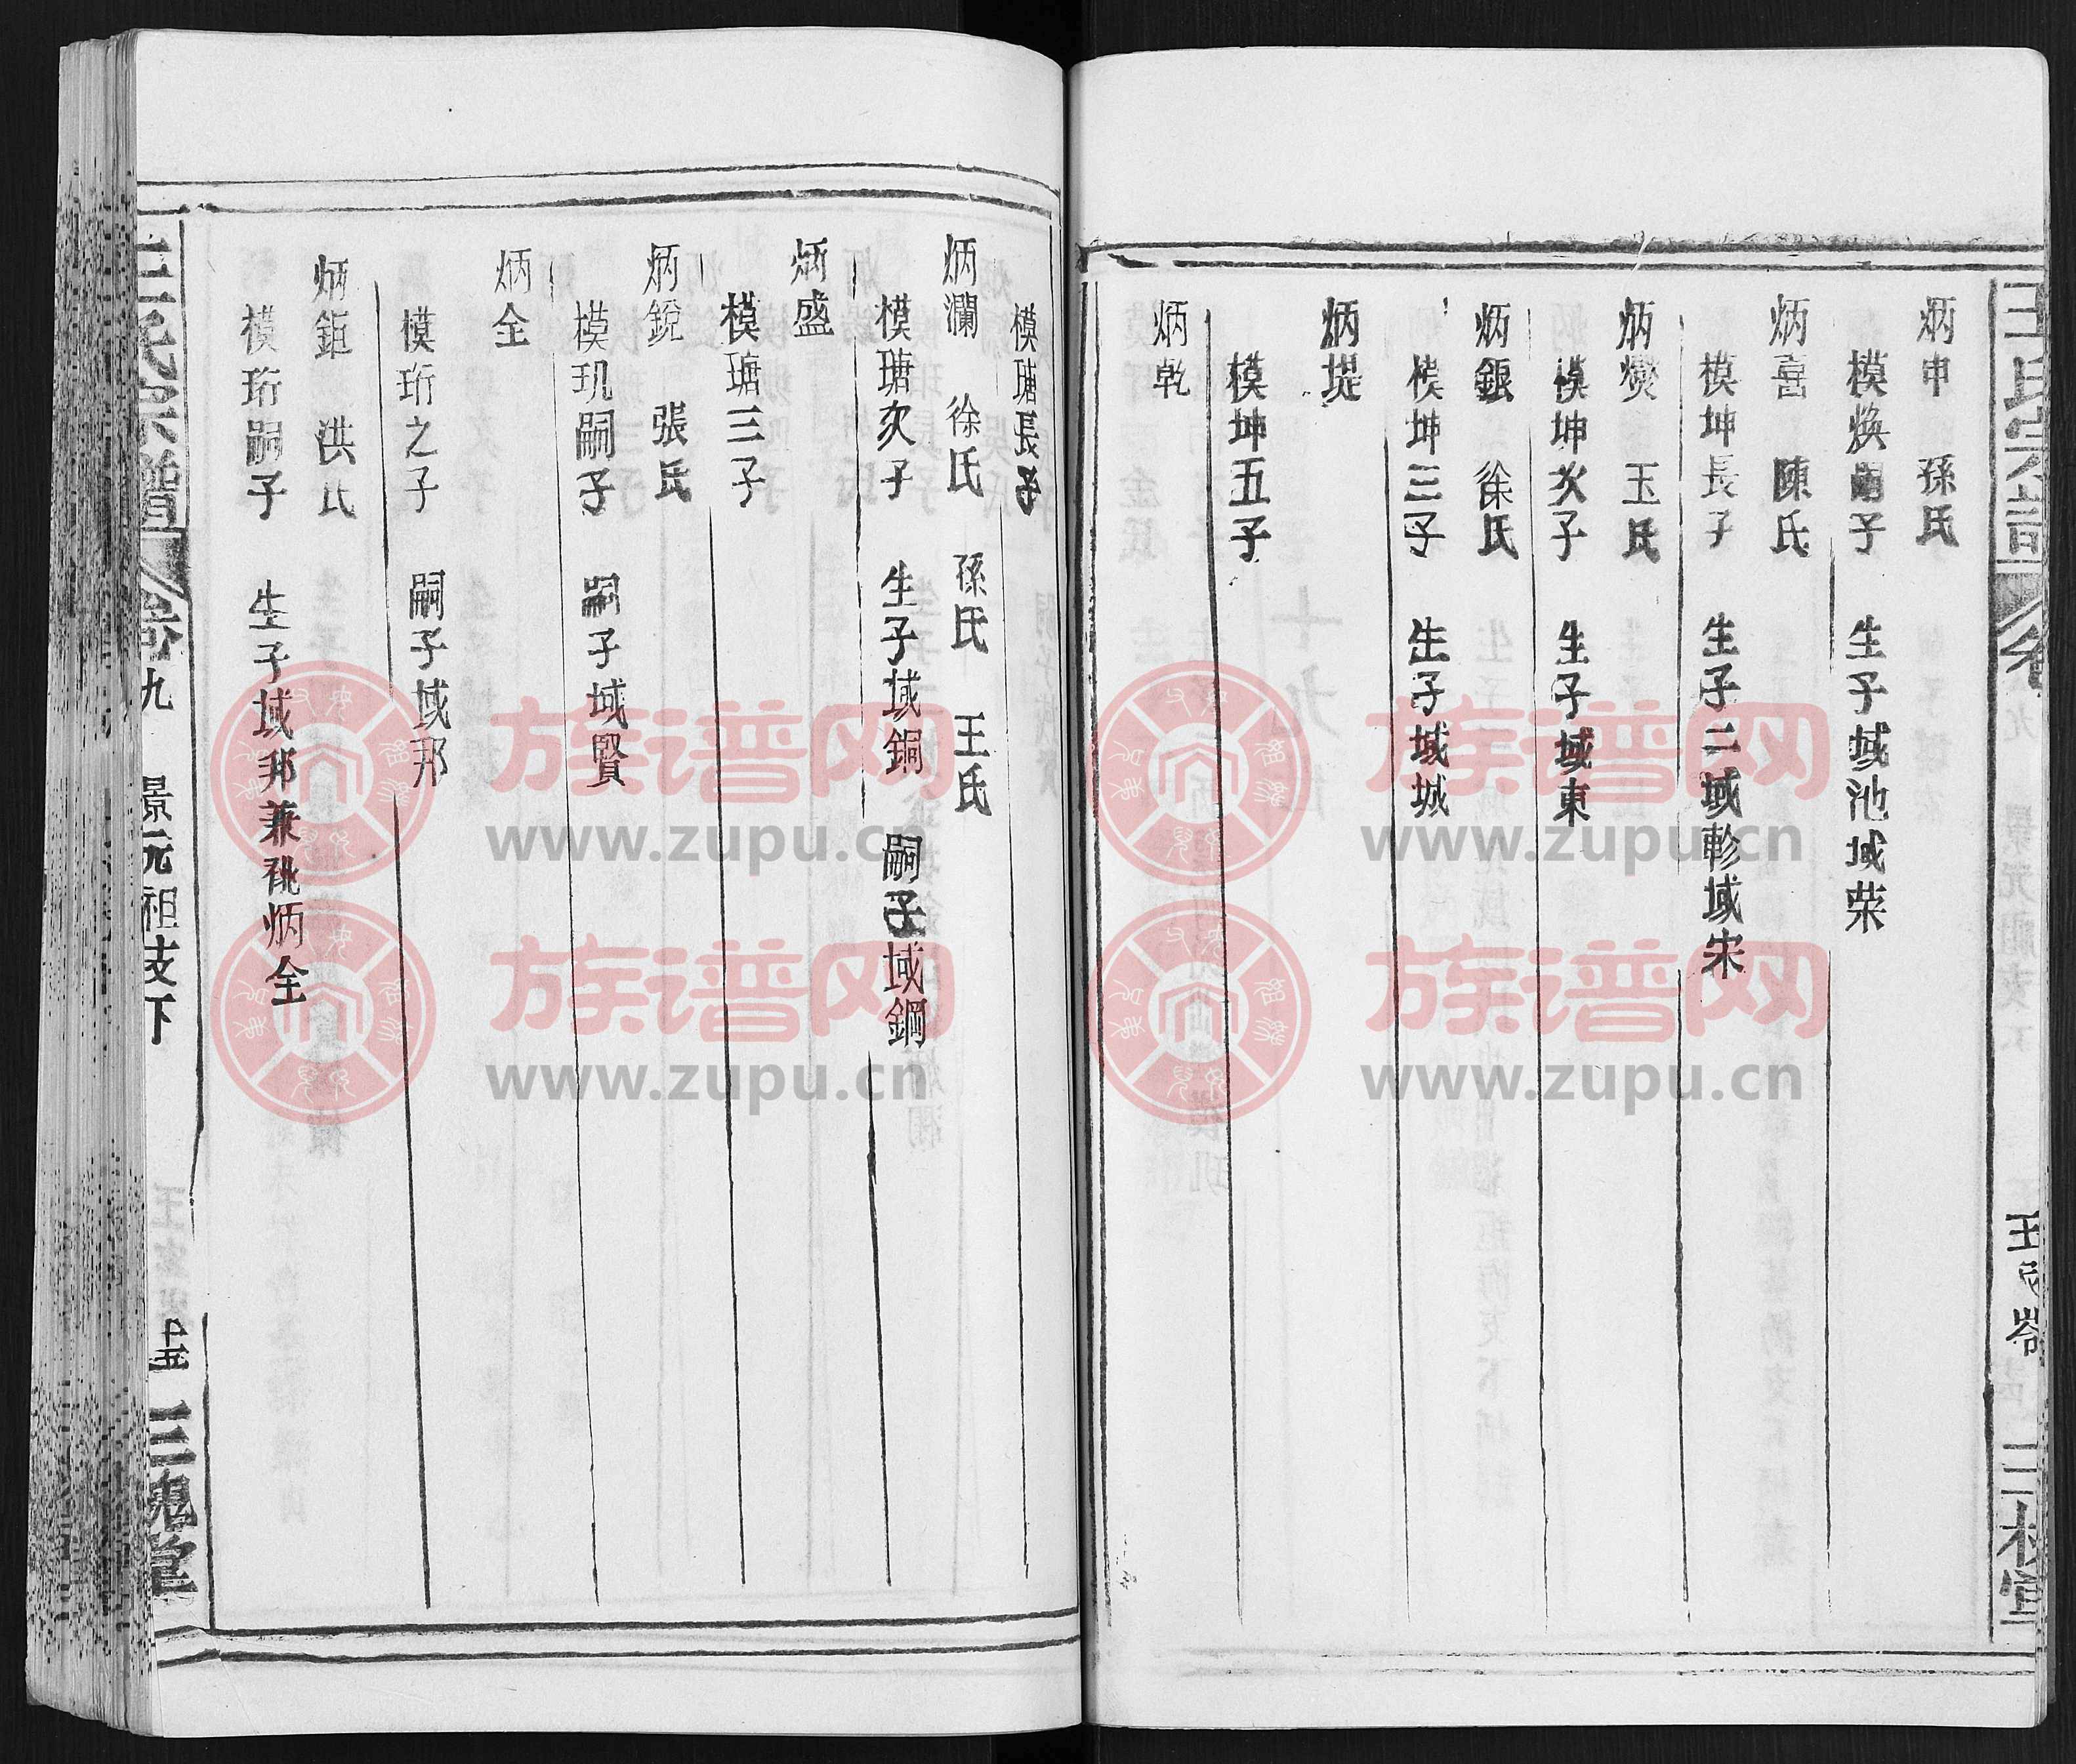 王氏宗譜
三槐堂
炳申 孫氏
模煥嗣子 生子域池域荣
炳喜 陳氏
模坤長子 生子二域軫域宋
炳爕 王氏
模坤次子 生子域東
炳銀 徐氏
模坤三子 生子域城
炳堤
模坤五子
炳乾
模瑭長子
炳瀾 徐氏 孫氏 王氏
模瑭次子 生子域銅 嗣子域鋼
炳盛
模瑭三子
炳銳 張氏
模玑嗣子 嗣子域賢
炳全
模珩之子 嗣子域邦
炳鉅 洪氏
模珩嗣子 生子域邦兼祧炳全
王氏宗譜 卷九 景元祖支下 三槐堂
族谱网
www.zupu.cn
族谱网
www.zupu.cn
族谱网
www.zupu.cn
族谱网
www.zupu.cn